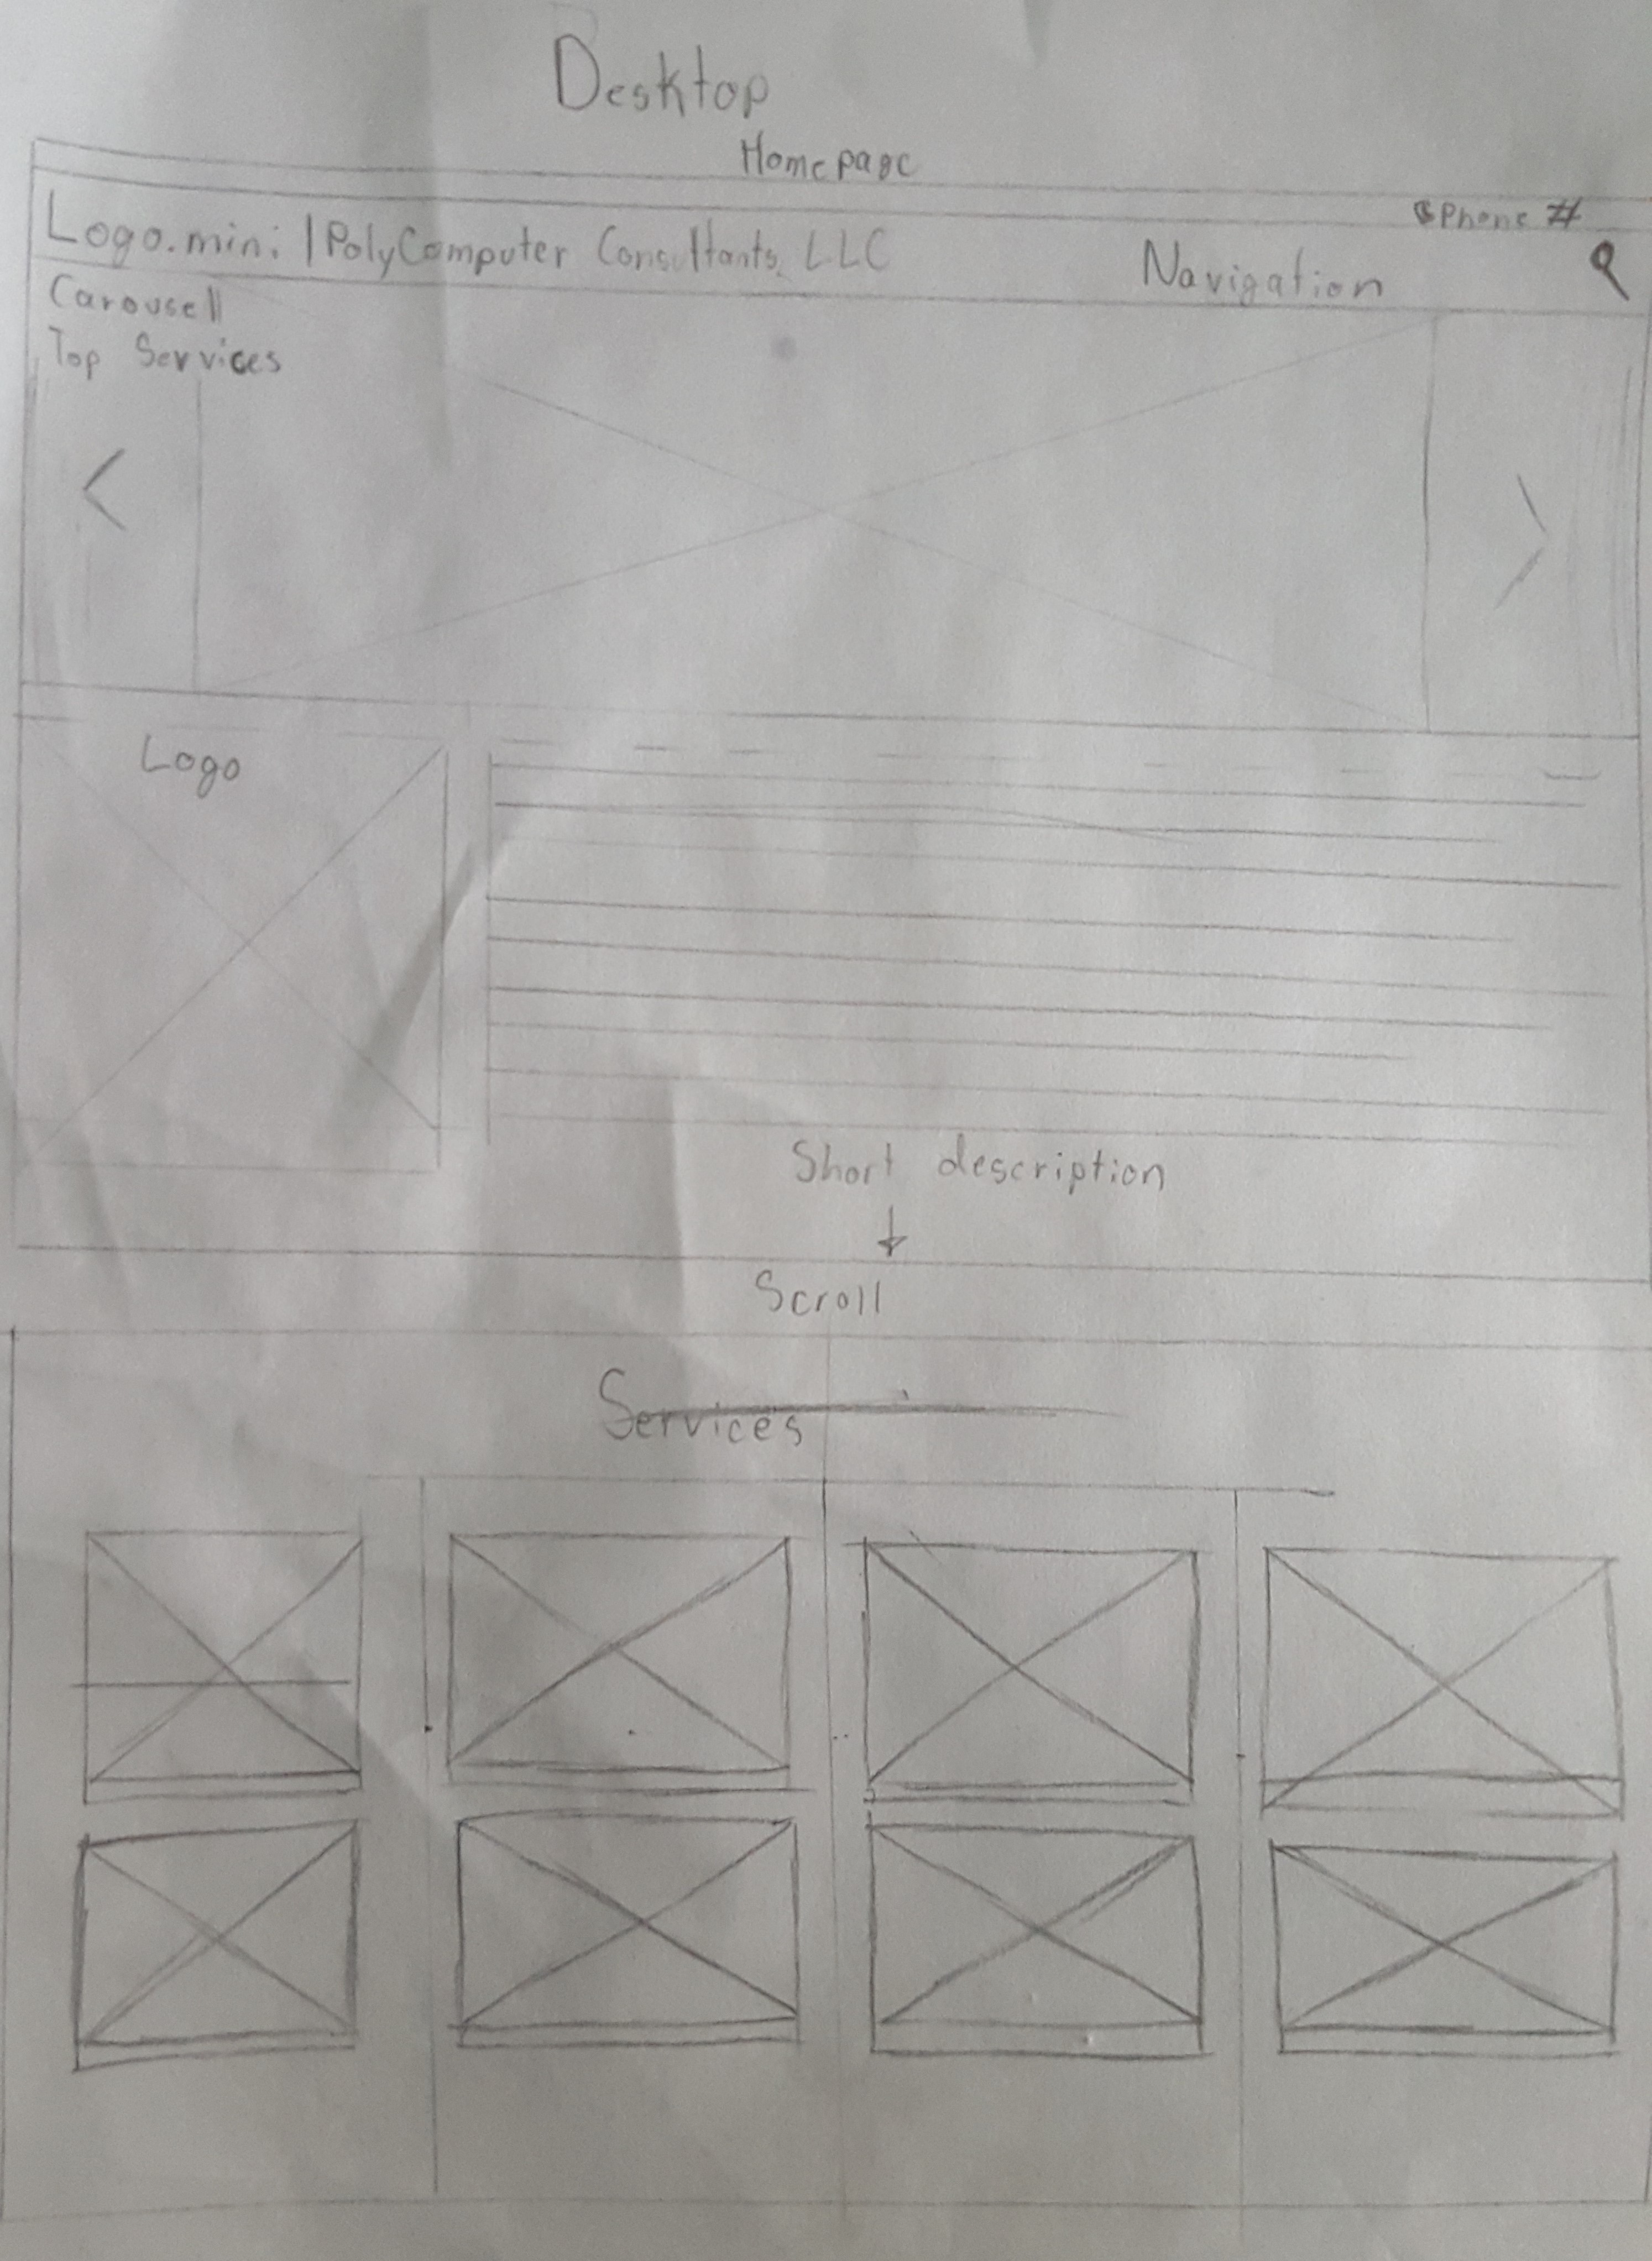 Desktop
Homepage
Phone #
Logo.mini | PolyComputer Consultants, LLC
Navigation
Carousell
Top Services
<
>
Logo
Short description
↓
Scroll
Services